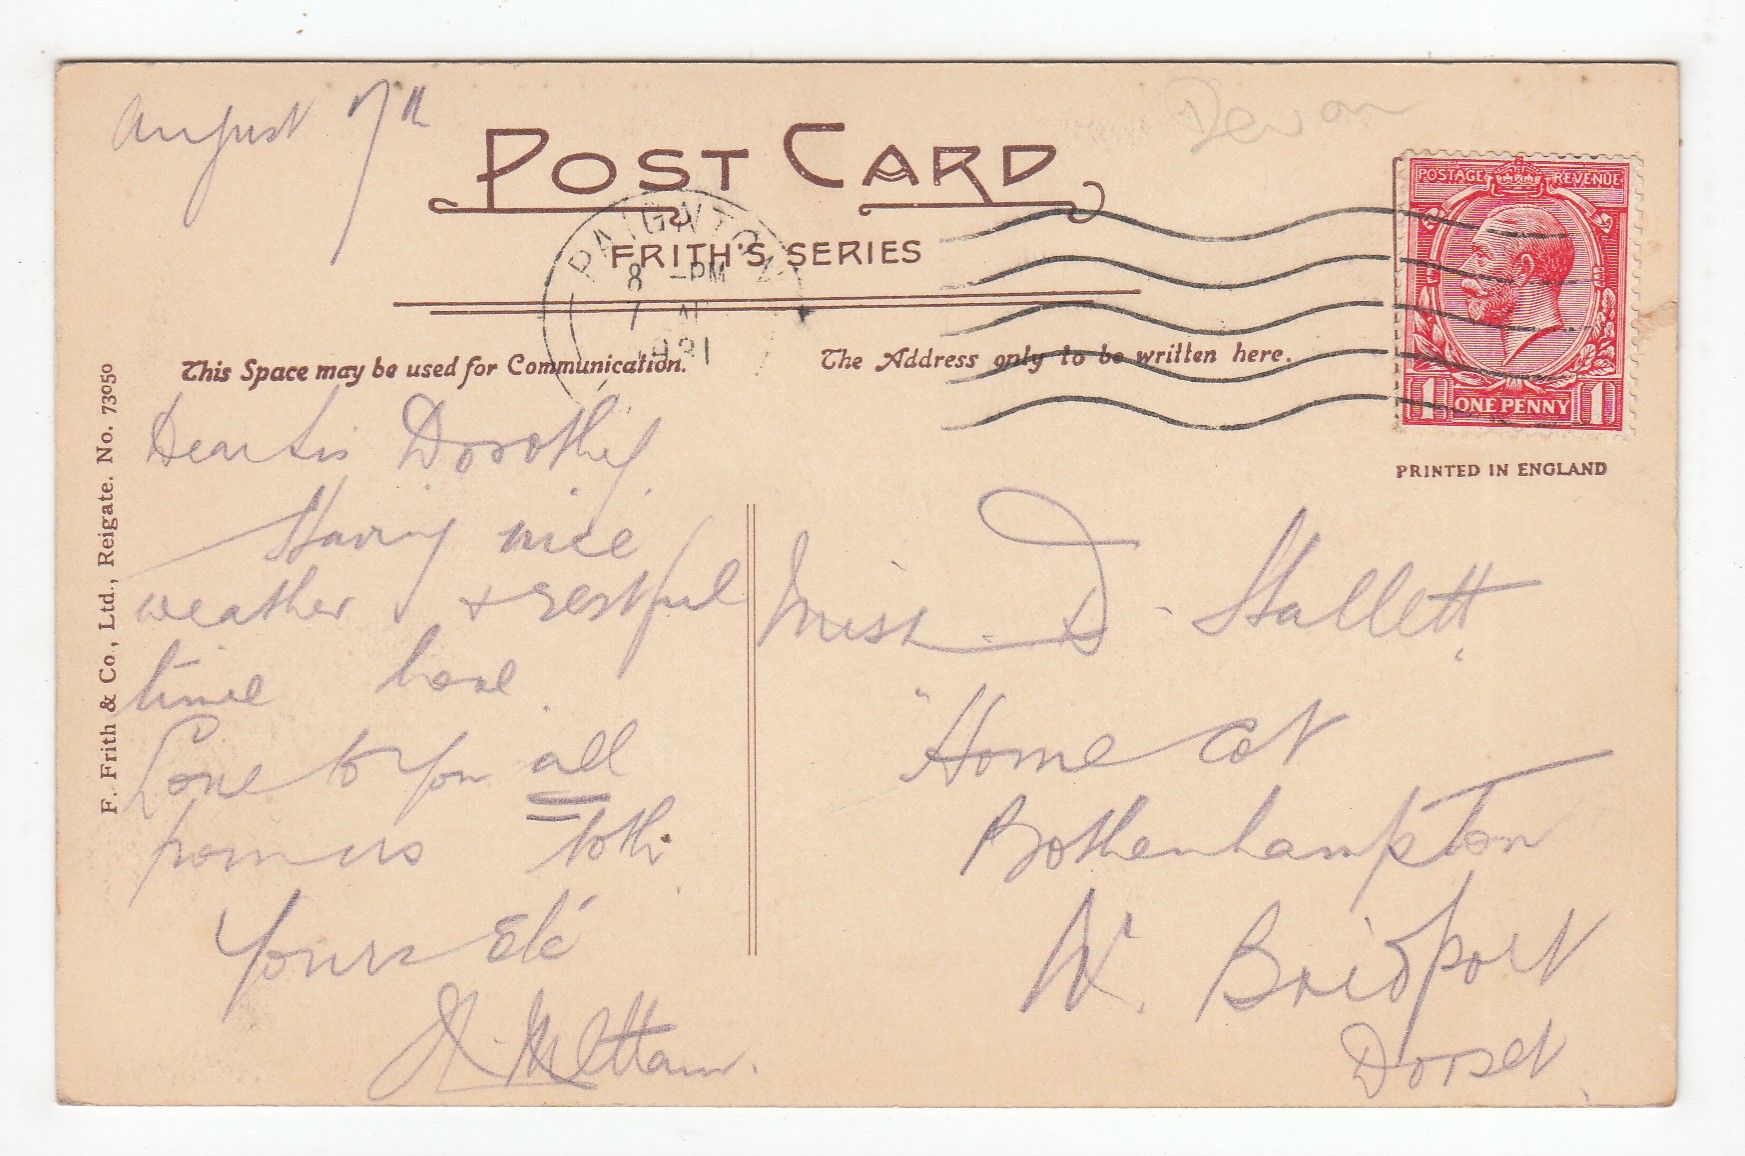 August 7th
Devon
POST CARD
FRITH'S SERIES
PAIGNTON
8 -PM
7 AU
1931
POSTAGE REVENUE
1 ONE PENNY 1
PRINTED IN ENGLAND
This Space may be used for Communication.
The Address only to be written here.
F. Frith & Co., Ltd., Reigate. No. 73050
Dear Sis Dorothy
Having nice
weather & restful
time here
Love to you all
Yours Etc
Miss D. Hallett
"Home Cot
Bothenhampton
Nr. Bridport
Dorset.